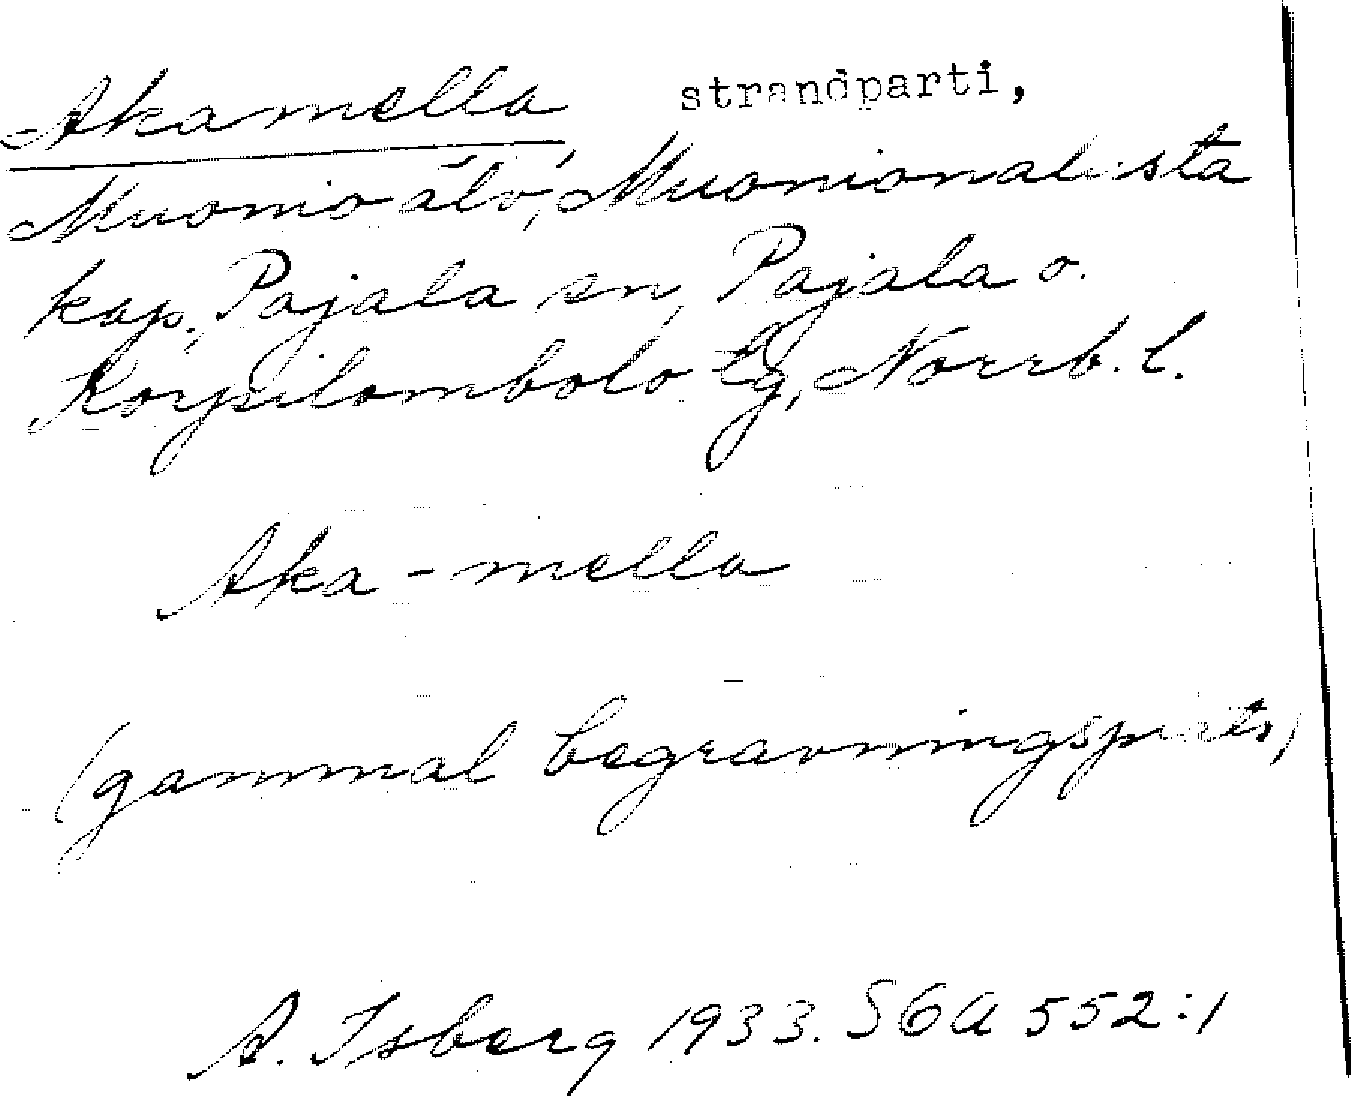 Akamella strandparti,
Muonio älv, Muonionalusta
kap., Pajala sn, Pajala o.
Korpilombolo tg, Norrb. l.
Aka-mella
(gammal begravningsplats)
A. Isberg 1933. SGA 552:1